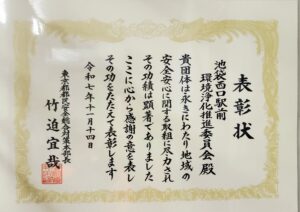 表彰状
池袋西口駅前
環境浄化推進委員会 殿
貴団体は永きにわたり地域の
安全安心に関する取組に尽力され
その功績は顕著でありました
ここに心から感謝の意を表し
その功をたたえて表彰します
令和七年十一月十四日
東京都都民安全総合対策本部長
竹迫宜哉